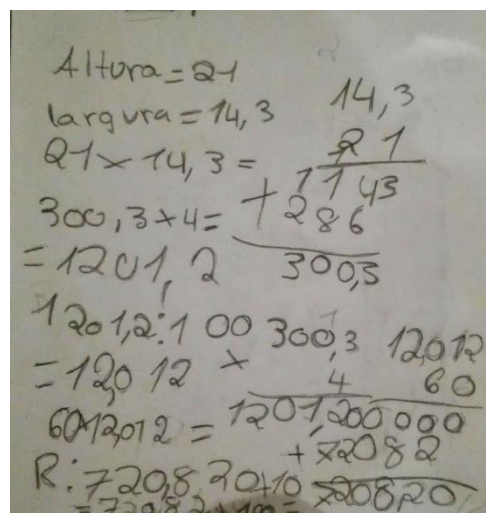 Altura = 21
largura = 14,3
21 x 14,3 =
300,3 x 4 =
= 1201,2
1201,2 : 100
= 12,012
60 x 12,012 =
R: 720,8
14,3
21
143
+ 286
300,3
300,3
x 4
1201,2
12,012
60
00 000
+ 72082
720820